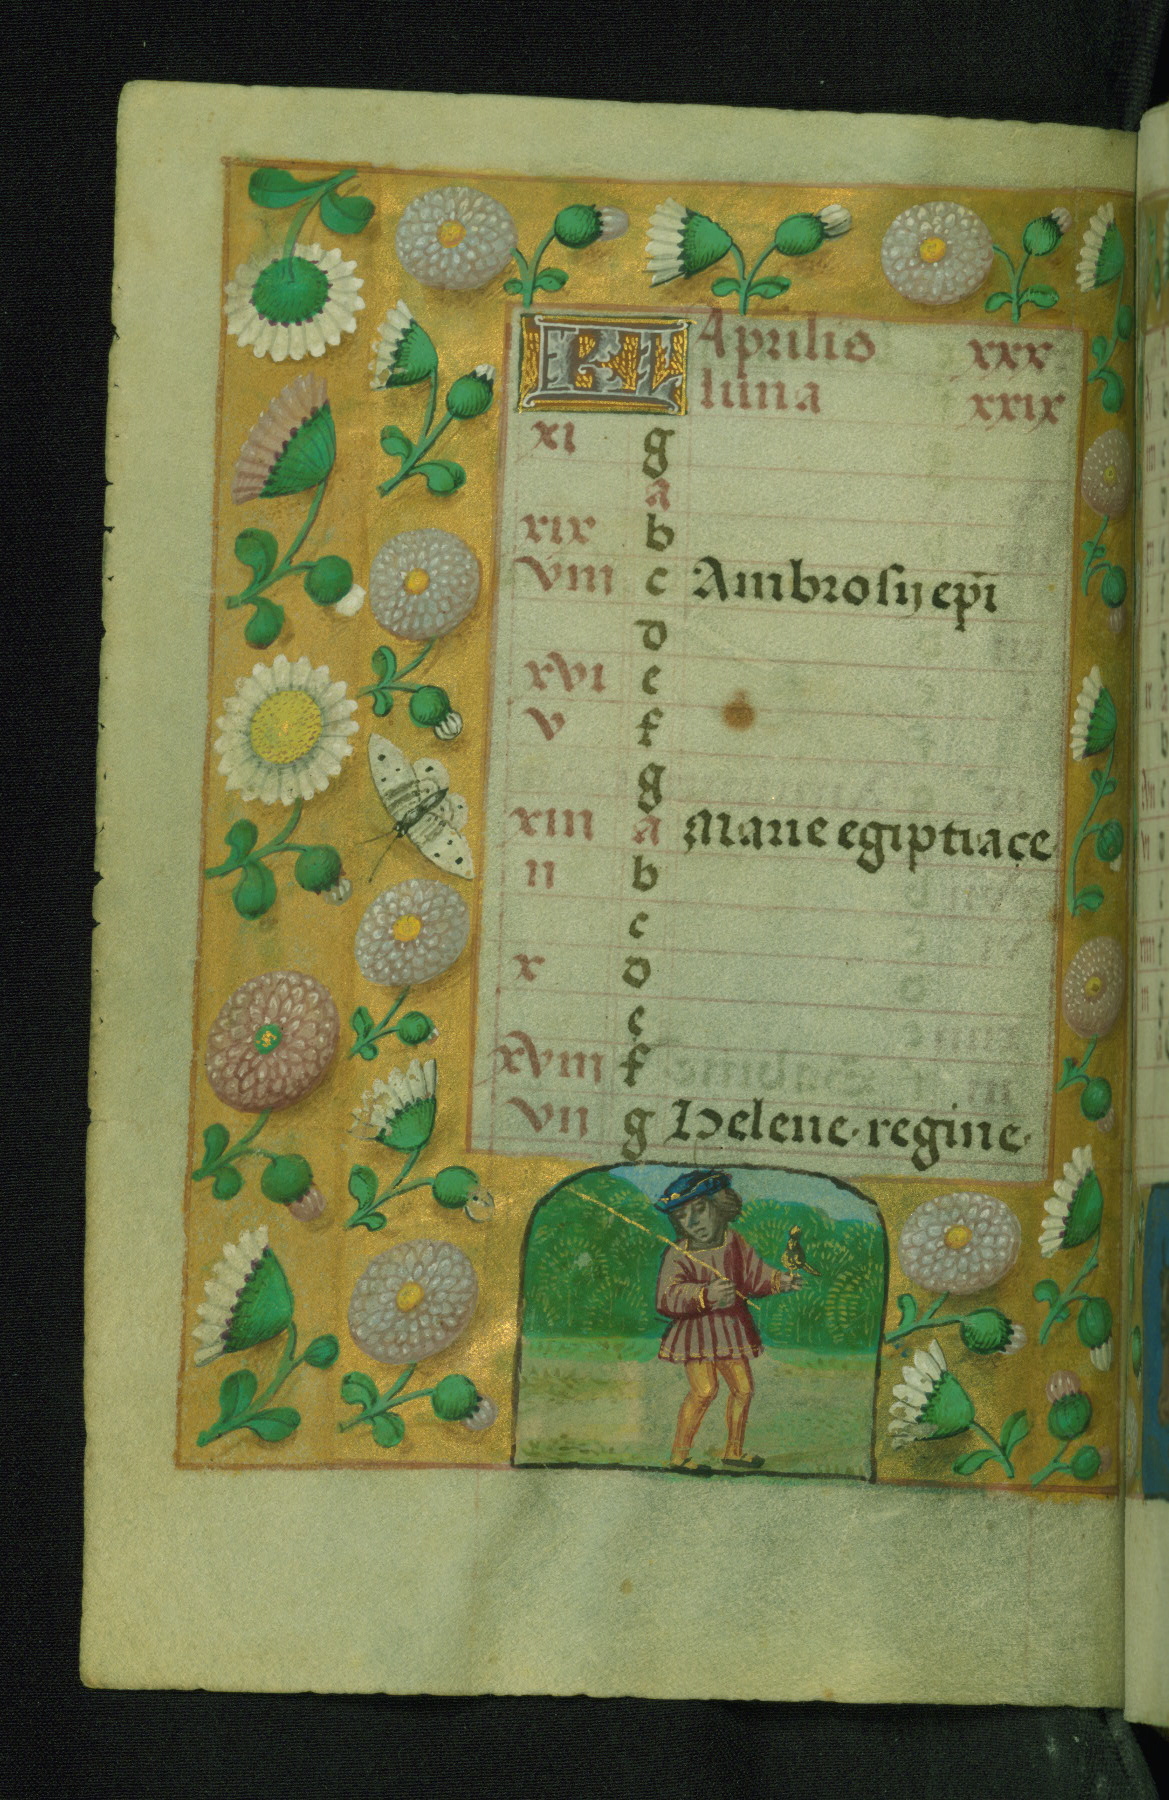 KL Aprilis xxx
luna xxix
xi g
a
xix b
viii c Ambrosij ep̄i
d
xvi e
v f
g
xiii a Marie egiptiace.
ii b
c
x d
e
xviii f
vii g Helene. regine.